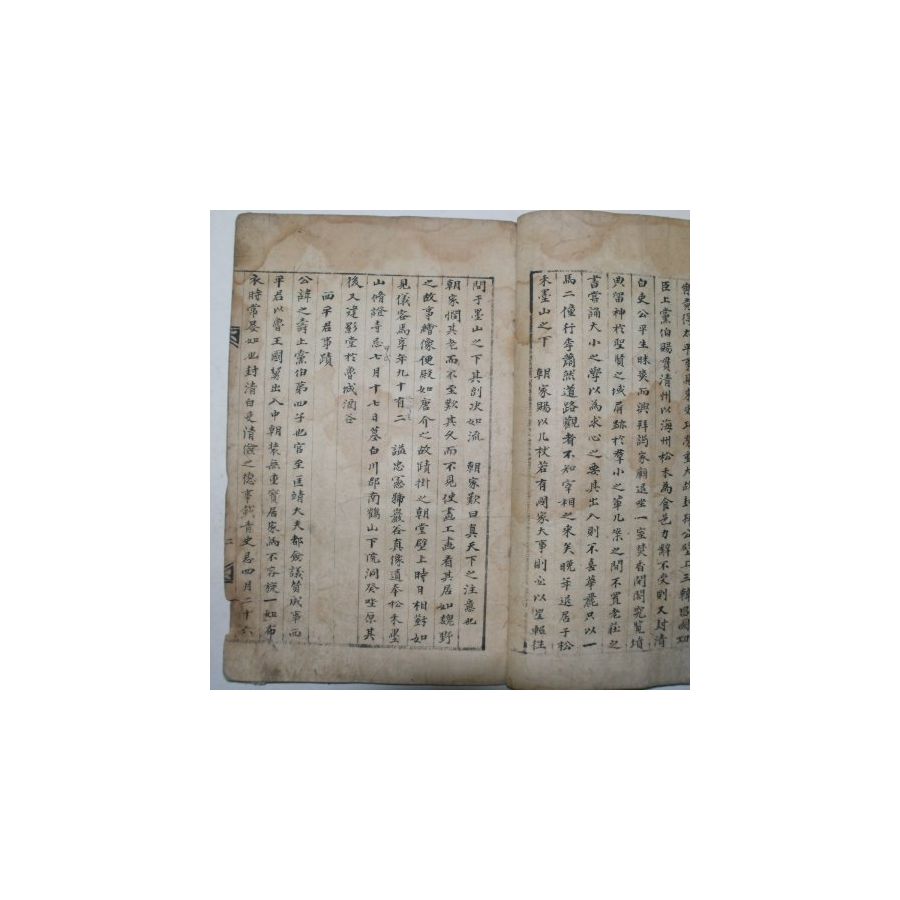 臣上黨伯賜貫淸州以海州松禾為食邑力辭不受則又封淸
白吏公平生昧爽而興拜謁家廟退坐一室焚香閉閤究覽墳
典留神於聖賢之域屛跡於羣小之輩几案之間不置老莊之
書嘗誦大小之學以為求心之要其出入則不喜華麗只以一
馬二僮行李蕭然道路觀者不知宰相之來矣晩年退居于松
禾墨山之下 朝家賜以几杖若有國家大事則必以星軺往
問于墨山之下其剖决如流 朝家歎曰真天下之注意也
朝家憫其老而不至歎其久而不見使畫工畫看其居如魏野
之故事繪像便殿如唐介之故蹟掛之朝堂壁上時日相對如
見儀容焉享年九十有二 謚忠憲號巖谷真像遺奉松禾墨
山脩證寺忌七月十七日墓白川郡南鶴山下院洞癸坐原其
後又建影堂於魯城酒谷
西平君事蹟
公諱之壽上黨伯第四子也官至匡靖大夫都僉議贊成事西
平君以魯王國舅出入中朝裝無重寶居家滿不容旋一如布
衣時常晏如也封淸白吏淸儉之德事載靑史忌四月二十六
二